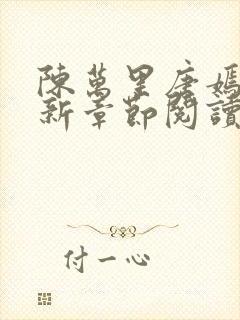 陳萬里唐嫣
新章節閱讀
付一心